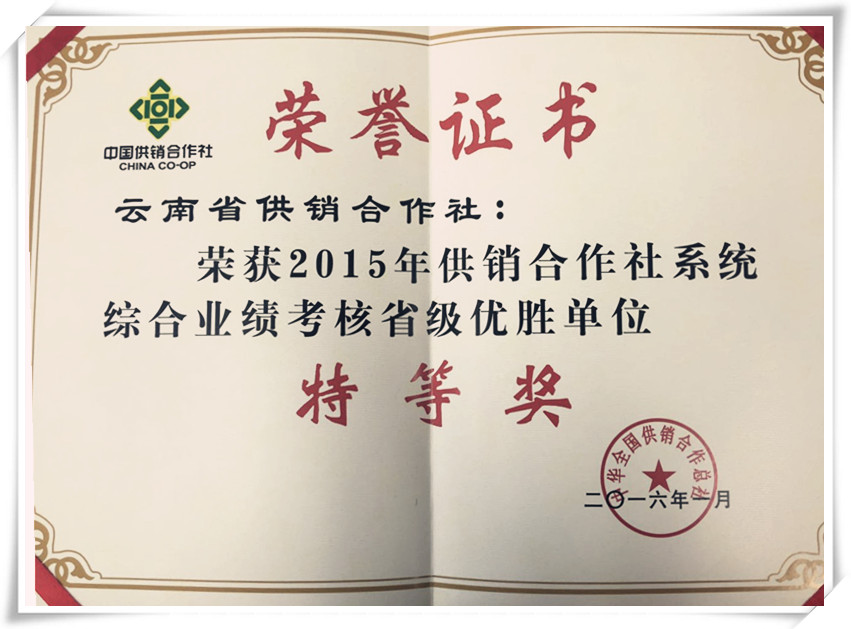 荣誉证书
中国供销合作社
CHINA CO-OP
云南省供销合作社：
荣获2015年供销合作社系统
综合业绩考核省级优胜单位
特等奖
中华全国供销合作总社
二〇一六年一月